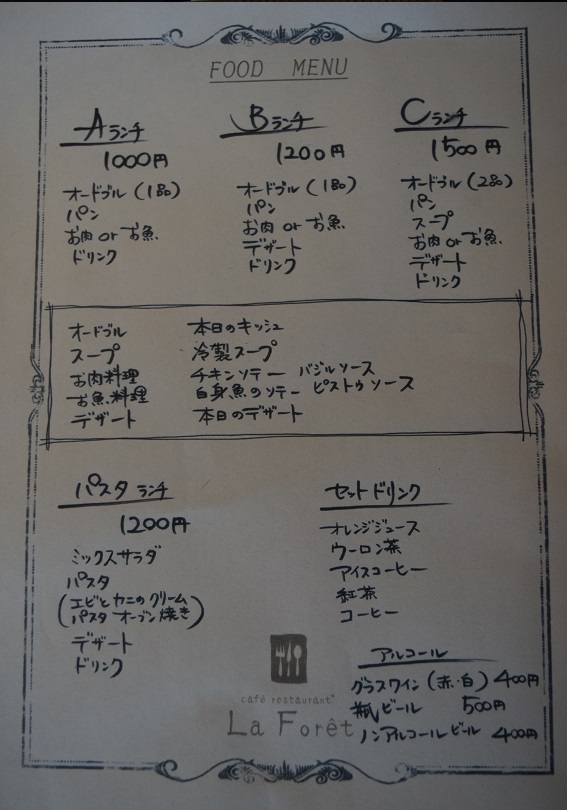 FOOD MENU
Aランチ
1000円
オードブル（1品）
パン
お肉 or お魚
ドリンク
Bランチ
1200円
オードブル（1品）
パン
お肉 or お魚
デザート
ドリンク
Cランチ
1500円
オードブル（2品）
パン
スープ
お肉 or お魚
デザート
ドリンク
オードブル 本日のキッシュ
スープ 冷製スープ
お肉料理 チキンソテー バジルソース
お魚料理 白身魚のソテー ピストゥソース
デザート 本日のデザート
パスタランチ
1200円
ミックスサラダ
パスタ
（エビとカニのクリーム
パスタ オーブン焼き）
デザート
ドリンク
セットドリンク
オレンジジュース
ウーロン茶
アイスコーヒー
紅茶
コーヒー
アルコール
グラスワイン（赤・白）400円
瓶ビール 500円
ノンアルコールビール 400円
café restaurant
La Forêt